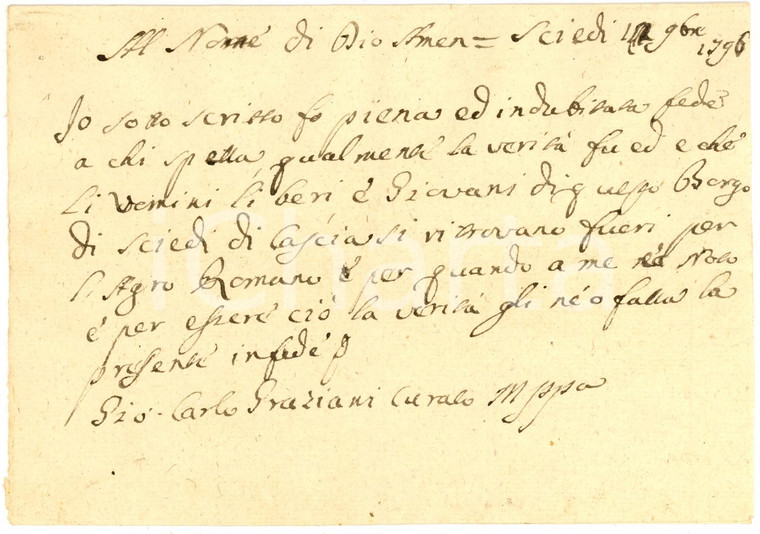 Al Nome di Dio Amen = Sciedi 9bre 1796
Io sotto scritto fo piena ed indubitata fede
a chi spetta qualmente la verità fu ed e che
li uomini liberi è Giovani di questo Borgo
di Sciedi di Cascia si ritrovano fueri per
l'Agro Romano è per quando a me né Noto
é per essere ció la verità gli né o fatta la
presente in fede
Gio. Carlo Graziani Curato Mppa
iCharta